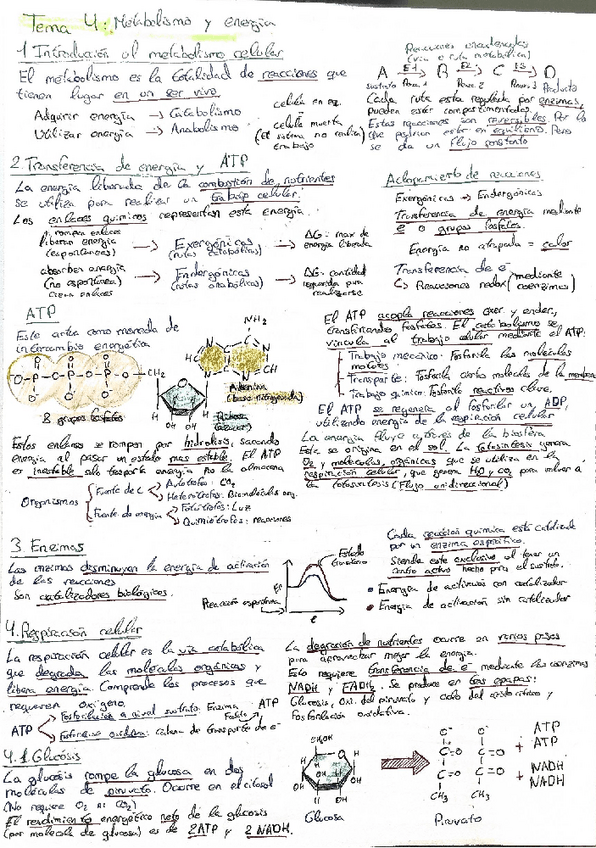 Tema 4: Metabolismo y energía
1. Introducción al metabolismo celular
El metabolismo es la totalidad de reacciones que
tienen lugar en un ser vivo.
Adquirir energía → Catabolismo
Utilizar energía → Anabolismo
célula en eq.
célula muerta
(el sistema no realiza)
trabajo
Reacciones encadenadas
(vía o ruta metabólica)
A E1 → B E2 → C E3 → D
sustrato Prod. 1 Prod. 2 Prod. 3 Producto
Cada ruta esta regulada por enzimas,
pueden estar compartimentadas.
Estas reacciones son reversibles. Por lo
que podrían estar en equilibrio. Pero
se da un flujo constante
2. Transferencia de energía y ATP
La energía liberada de la combustión de nutrientes
se utiliza para realizar un trabajo celular.
Los enlaces químicos representan esta energía.
rompen enlaces
liberan energía
(espontáneas)
→ Exergónicas
(rutas catabólicas)
→ ΔG: max de
energía liberada
absorben energía
(no espontánea)
crean enlaces
→ Endergónicas
(rutas anabólicas)
→ ΔG: cantidad
requerida para
realizarse
Acoplamiento de reacciones
Exergónicas → Endergónicas
Transferencia de energía mediante
e⁻ o grupos fosfatos.
Energía no atrapada = calor
Transferencia de e⁻
↳ Reacciones redox (mediante
coenzimas)
ATP
Este actúa como moneda de
intercambio energética
NH₂
O O O
O-P-O-P-O-P-O-CH₂
O⁻ O⁻ O⁻
3 grupos fosfatos
Adenina
(base nitrogenada)
H H
OH OH
Ribosa
(azúcar)
Estos enlaces se rompen por hidrólisis, sacando
energía al pasar un estado mas estable. El ATP
es inestable solo trasporta energía no la almacena
Organismos
Fuente de C
Autótrofos: CO₂
Heterótrofos: Biomoléculas org.
Fuente de energía
Fotótrofos: Luz
Quimiótrofos: reacciones
El ATP acopla reacciones exer y ender,
transfiriendo fosfatos. El catabolismo se
vincula al trabajo celular mediante el ATP:
Trabajo mecánico: Fosforila las moléculas
motores
Transporte: Fosforila ciertas moléculas de la membrana
Trabajo químico: Fosforila reactivos clave.
El ATP se regenera al fosforilar un ADP,
utilizando energía de la respiración celular
La energía fluye a través de la biosfera
Este se origina en el sol. La fotosíntesis genera
O₂ y moléculas orgánicas que se utiliza en la
respiración celular, que genera H₂O y CO₂ para volver a
la fotosíntesis (Flujo unidireccional)
3. Enzimas
Las enzimas disminuyen la energía de activación
de las reacciones
Son catalizadores biológicos.
Reacción espontánea
Estado
transitorio
Cada reacción química está catalizada
por un enzima específico.
Siendo este exclusivo al tener un
centro activo hecho para el sustrato.
• Energía de activación con catalizador
• Energía de activación sin catalizador
4. Respiración celular
La respiración celular es la vía catabólica
que degrada las moléculas orgánicas y
libera energía. Comprende los procesos que
requieren oxígeno.
ATP
Fosforilación a nivel sustrato: Enzima ATP
Fosforilac oxidativa: cadena de transporte de e⁻
La degradación de nutrientes ocurre en varios pasos
para aprovechar mejor la energía.
Esto requiere transferencia de e⁻ mediante las coenzimas
NADH y FADH₂. Se produce en tres etapas:
Glucosis, Oxi. del piruvato y ciclo del ácido cítrico y
Fosforilación oxidativa.
4.1 Glucósis
La glucósis rompe la glucosa en dos
moléculas de piruvato. Ocurre en el citosol
(No requiere O₂ ni CO₂)
El rendimiento energético neto de la glucosis
(por molécula de glucosa) es de 2ATP y 2 NADH.
Glucosa
O⁻ O⁻
C=O C=O
C=O C=O
CH₃ CH₃
Piruvato
+ ATP
ATP
+ NADH
NADH